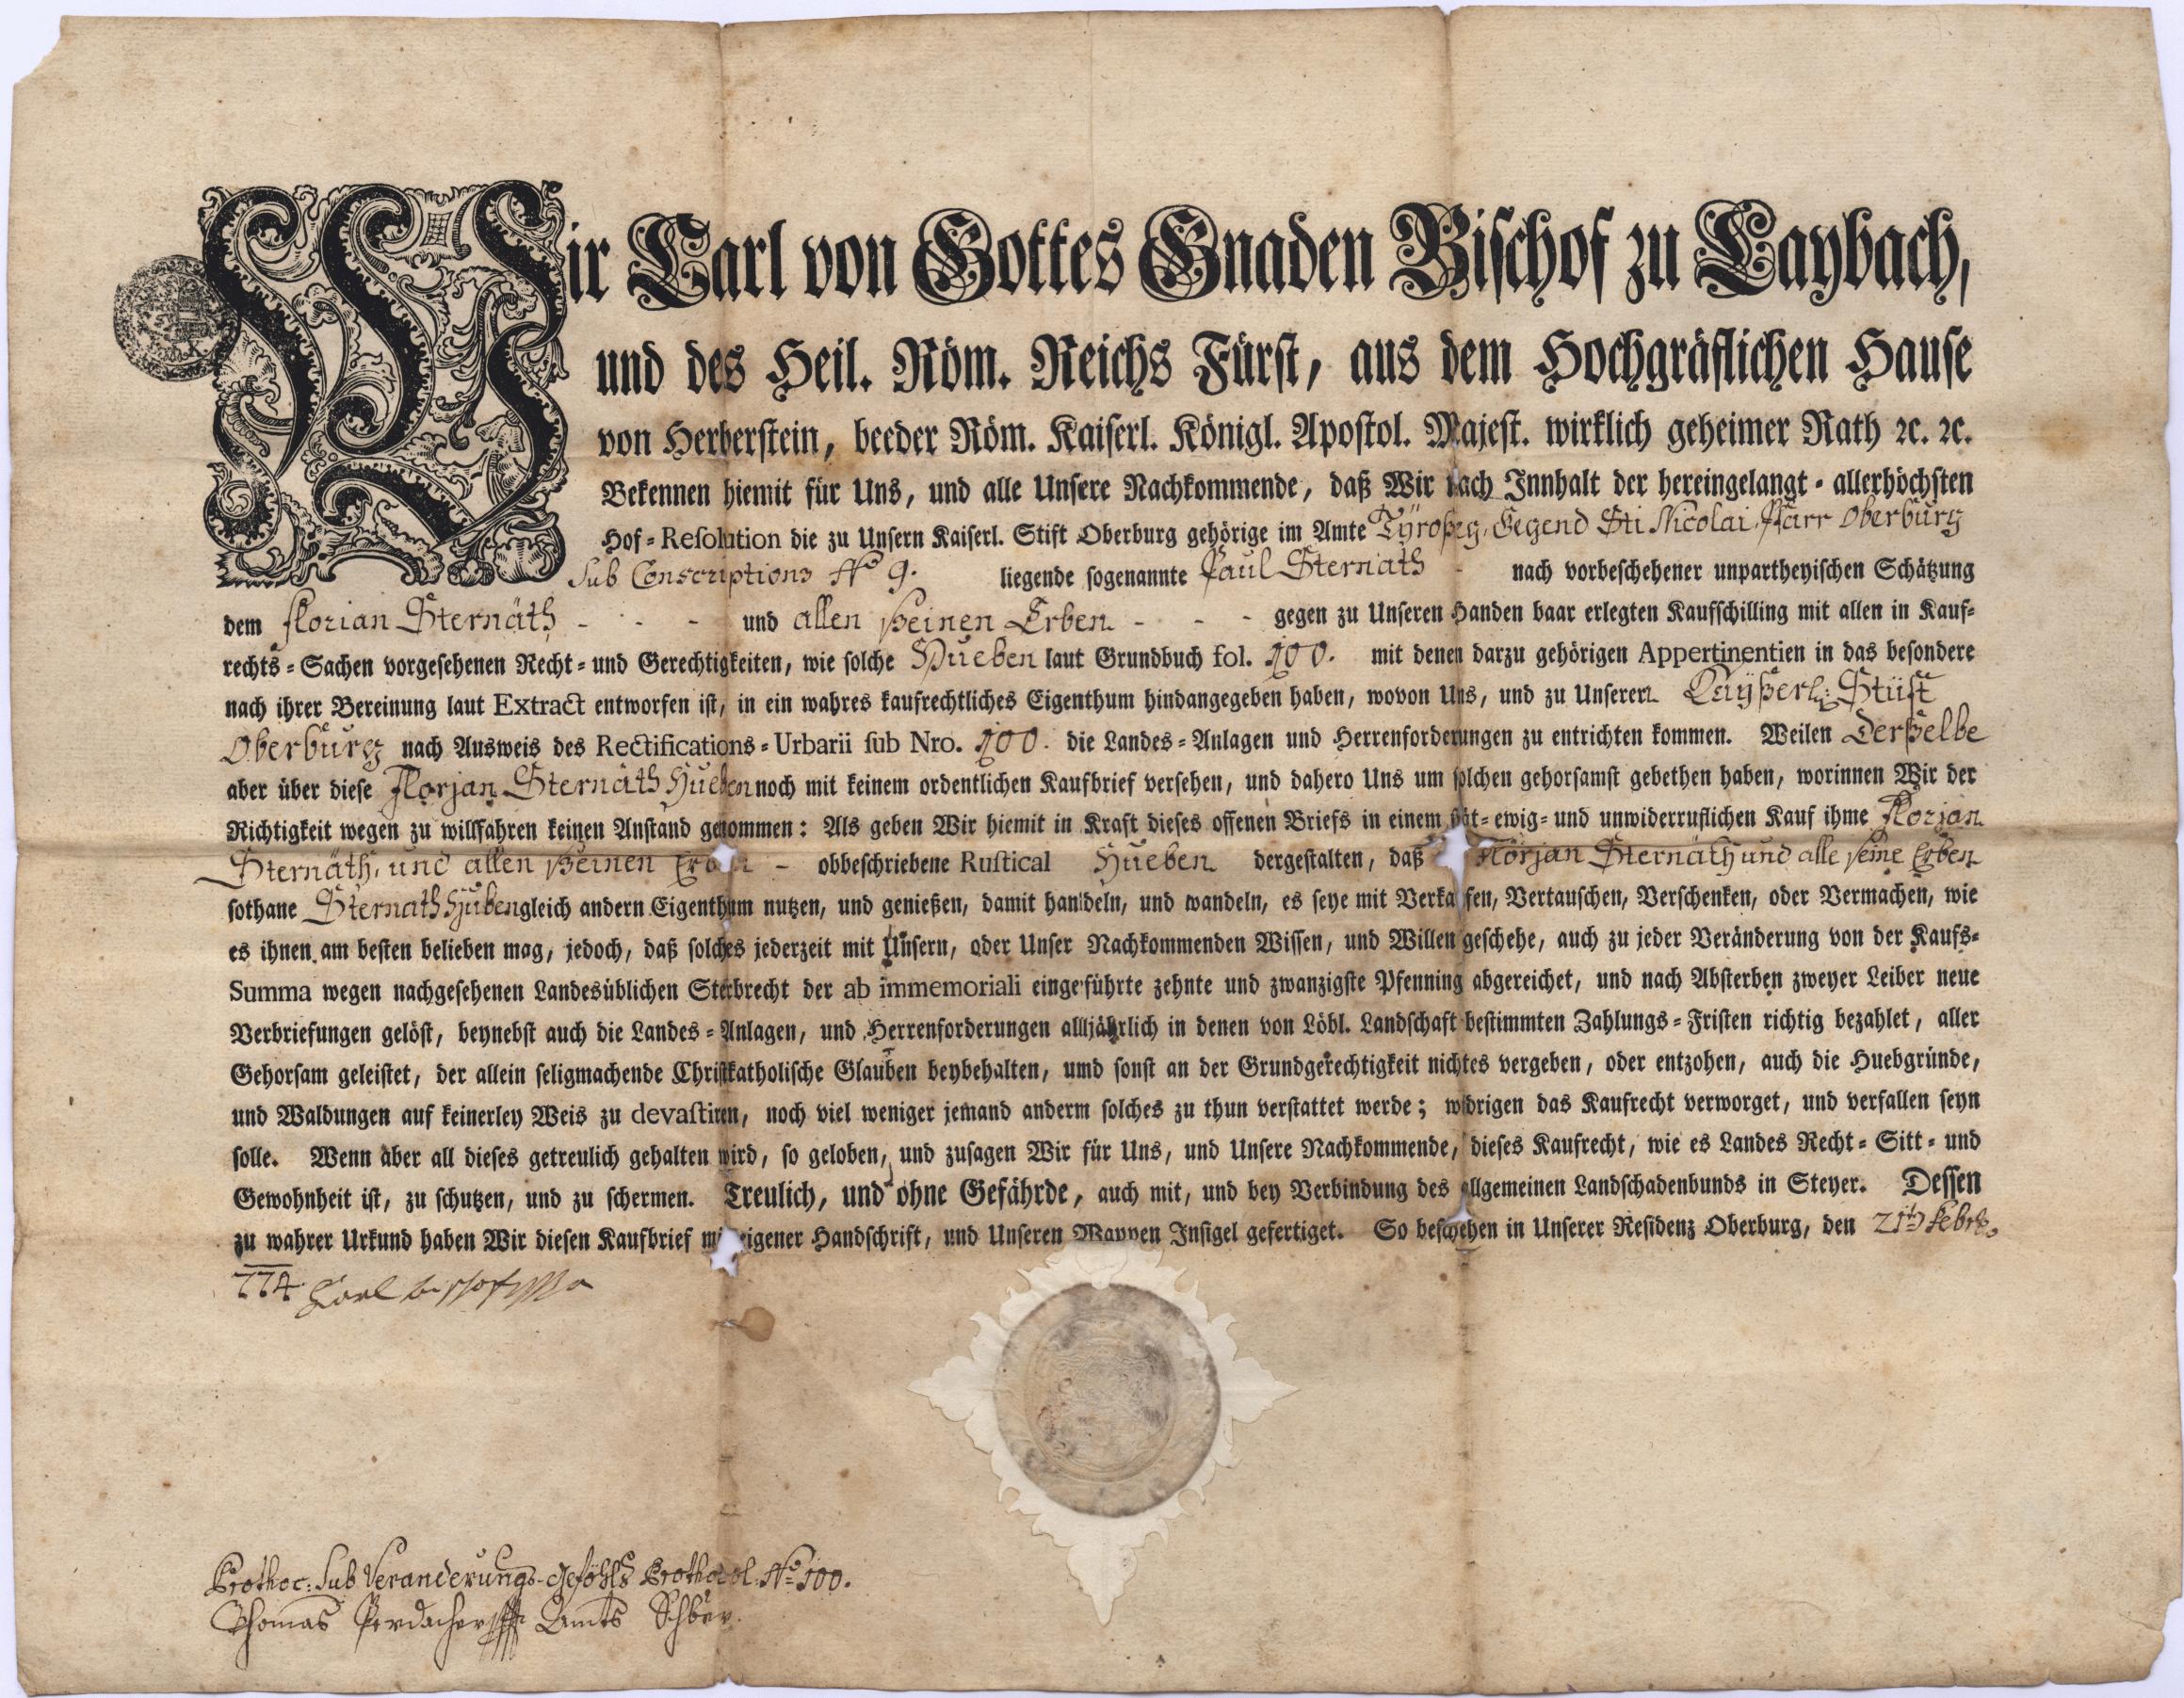 Wir Carl von Gottes Gnaden Bischof zu Laybach,
und des Heil. Röm. Reichs Fürst, aus dem Hochgräflichen Hause
von Herberstein, beeder Röm. Kaiserl. Königl. Apostol. Majest. wirklich geheimer Rath ꝛc. ꝛc.
Bekennen hiemit für Uns, und alle Unsere Nachkommende, daß Wir nach Innhalt der hereingelangt-allerhöchsten
Hof-Resolution die zu Unsern Kaiserl. Stift Oberburg gehörige im Amte Gegend Sti Nicolai Pfarr Oberburg
Sub Conscriptions No 9. liegende sogenannte Paul Sternäth nach vorbeschehener unpartheyischen Schätzung
dem florian Sternäth - - - und allen seinen Erben - - - gegen zu Unseren Handen baar erlegten Kaufschilling mit allen in Kauf-
rechts-Sachen vorgesehenen Recht- und Gerechtigkeiten, wie solche Hueben laut Grundbuch fol. 100. mit denen darzu gehörigen Appertinentien in das besondere
nach ihrer Bereinung laut Extract entworfen ist, in ein wahres kaufrechtliches Eigenthum hindangegeben haben, wovon Uns, und zu Unseren Kaÿserl: Stüft
Oberburg nach Ausweis des Rectifications-Urbarii sub Nro. 100. die Landes-Anlagen und Herrenforderungen zu entrichten kommen. Weilen Derselbe
aber über diese Florjan Sternäth Hueben noch mit keinem ordentlichen Kaufbrief versehen, und dahero Uns um solchen gehorsamst gebethen haben, worinnen Wir der
Richtigkeit wegen zu willfahren keinen Anstand genommen: Als geben Wir hiemit in Kraft dieses offenen Briefs in einem stät-ewig- und unwiderruflichen Kauf ihme Florjan
Sternäth, und allen seinen Erben - obbeschriebene Rustical Hueben dergestalten, daß Florjan Sternäth und alle seine Erben
sothane Sternäth Hueben gleich andern Eigenthum nutzen, und genießen, damit handeln, und wandeln, es seye mit Verkaufen, Vertauschen, Verschenken, oder Vermachen, wie
es ihnen am besten belieben mag, jedoch, daß solches jederzeit mit Unsern, oder Unser Nachkommenden Wissen, und Willen geschehe, auch zu jeder Veränderung von der Kaufs-
Summa wegen nachgesehenen Landesüblichen Sterbrecht der ab immemoriali eingeführte zehnte und zwanzigste Pfenning abgereichet, und nach Absterben zweyer Leiber neue
Verbriefungen gelöst, beynebst auch die Landes-Anlagen, und Herrenforderungen alljährlich in denen von Löbl. Landschaft bestimmten Zahlungs-Fristen richtig bezahlet, aller
Gehorsam geleistet, der allein seligmachende Christkatholische Glauben beybehalten, umd sonst an der Grundgerechtigkeit nichtes vergeben, oder entzohen, auch die Huebgründe,
und Waldungen auf keinerley Weis zu devastiren, noch viel weniger jemand anderm solches zu thun verstattet werde; widrigen das Kaufrecht verworget, und verfallen seyn
solle. Wenn aber all dieses getreulich gehalten wird, so geloben, und zusagen Wir für Uns, und Unsere Nachkommende, dieses Kaufrecht, wie es Landes Recht-Sitt- und
Gewohnheit ist, zu schutzen, und zu schermen. Treulich, und ohne Gefährde, auch mit, und bey Verbindung des allgemeinen Landschadenbunds in Steyer. Dessen
zu wahrer Urkund haben Wir diesen Kaufbrief mit eigener Handschrift, und Unseren Wappen Insigel gefertiget. So beschehen in Unserer Residenz Oberburg, den 21th Febr.
774. Carl bischof
Prothoc: Sub Veranderungs-Gefähls Prothocol. No 100.
Thomas Perdacher Amts Schbrr.